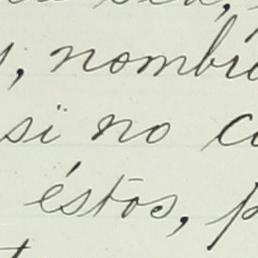 , nombr
si no c
éstos, p